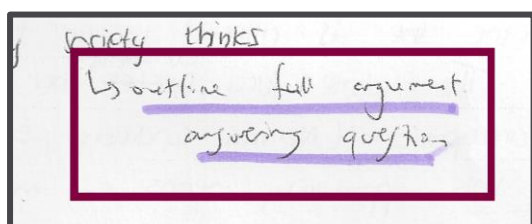 society thinks
↳ outline full argument
answering question